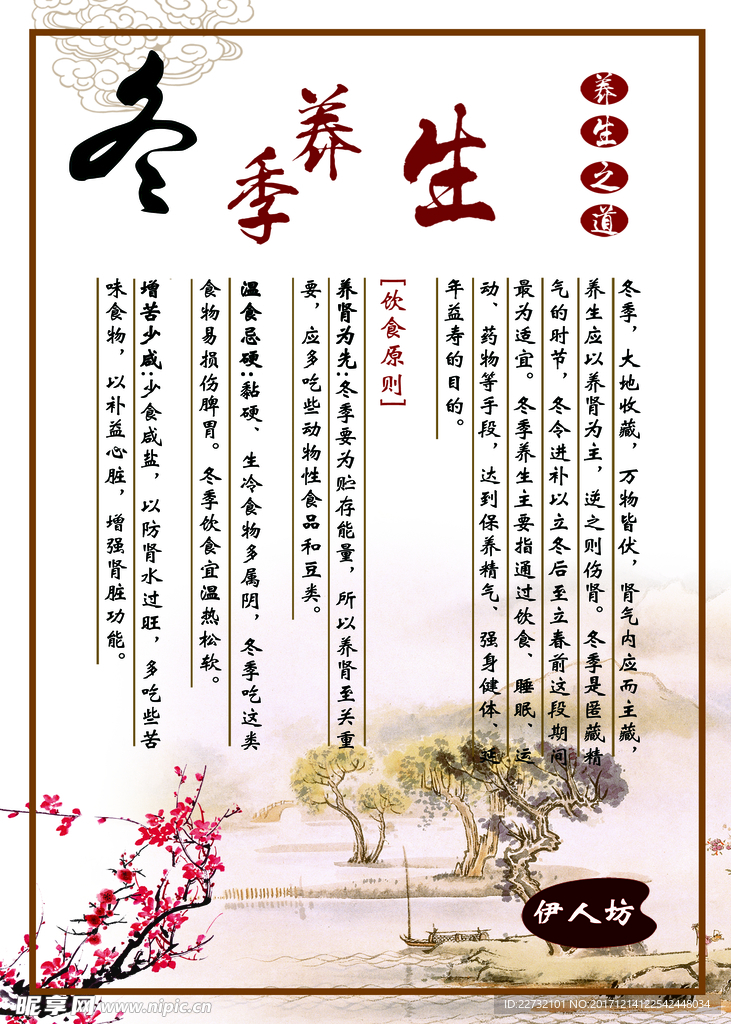 冬季养生
养生之道
冬季，大地收藏，万物皆伏，肾气内应而主藏，
养生应以养肾为主，逆之则伤肾。冬季是匿藏精
气的时节，冬令进补以立冬后至立春前这段期间
最为适宜。冬季养生主要指通过饮食、睡眠、运
动、药物等手段，达到保养精气、强身健体、延
年益寿的目的。
[饮食原则]
养肾为先:冬季要为贮存能量，所以养肾至关重
要，应多吃些动物性食品和豆类。
温食忌硬:黏硬、生冷食物多属阴，冬季吃这类
食物易损伤脾胃。冬季饮食宜温热松软。
增苦少咸:少食咸盐，以防肾水过旺，多吃些苦
味食物，以补益心脏，增强肾脏功能。
伊人坊
昵享网 www.nipic.cn
ID:22732101 NO:20171214122542448034